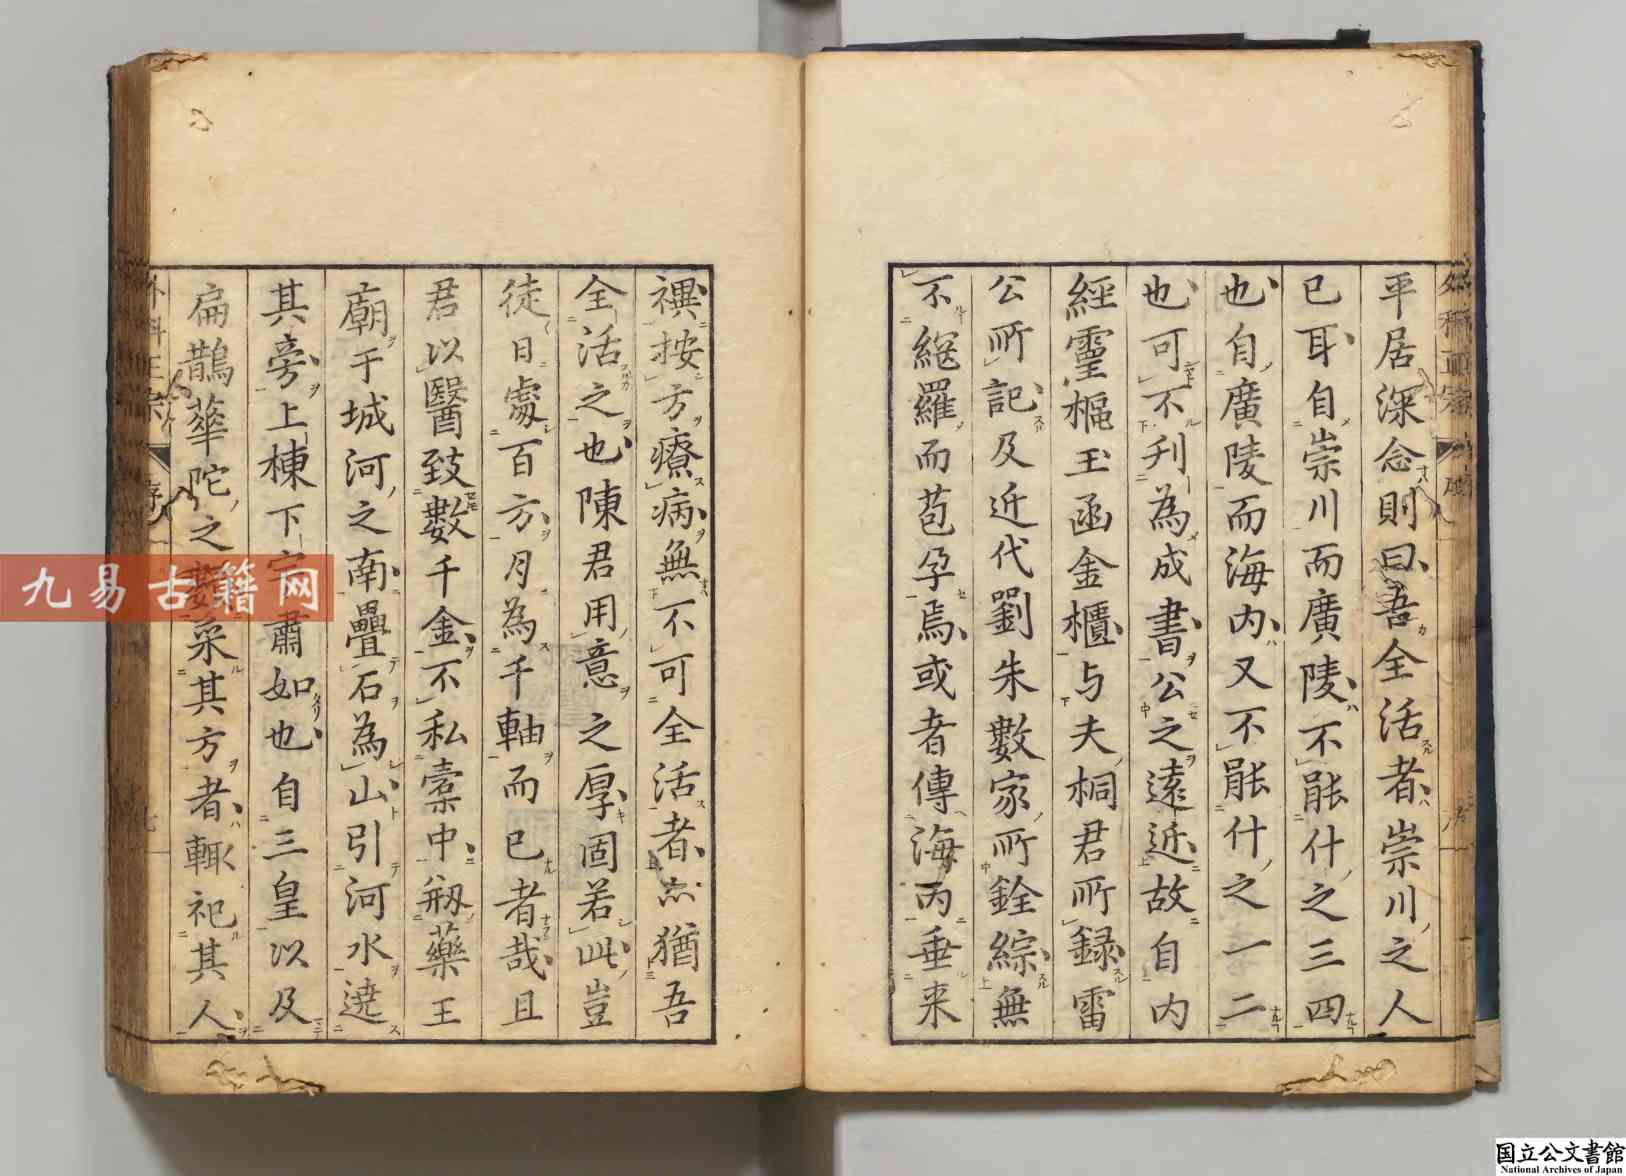 平居深念則曰吾全活者崇川之人
已耳自崇川而廣陵不能什之三四
也自廣陵而海内又不能什之一二
也可不刋為成書公之遠近故自内
經靈樞玉函金櫃与夫桐君所録雷
公所記及近代劉朱數家所銓綜無
不縂羅而苞孕焉或者傳海内垂来
禩按方療病無不可全活者亦猶吾
全活之也陳君用意之厚固若此豈
徒日處百方月為千軸而已者哉且
君以醫致數千金不私橐中剏藥王
廟于城河之南疊石為山引河水遶
其旁上棟下宇肅如也自三皇以及
扁鵲華陀之數采其方者輙祀其人
外科正宗
序
九易古籍网
国立公文書館
National Archives of Japan